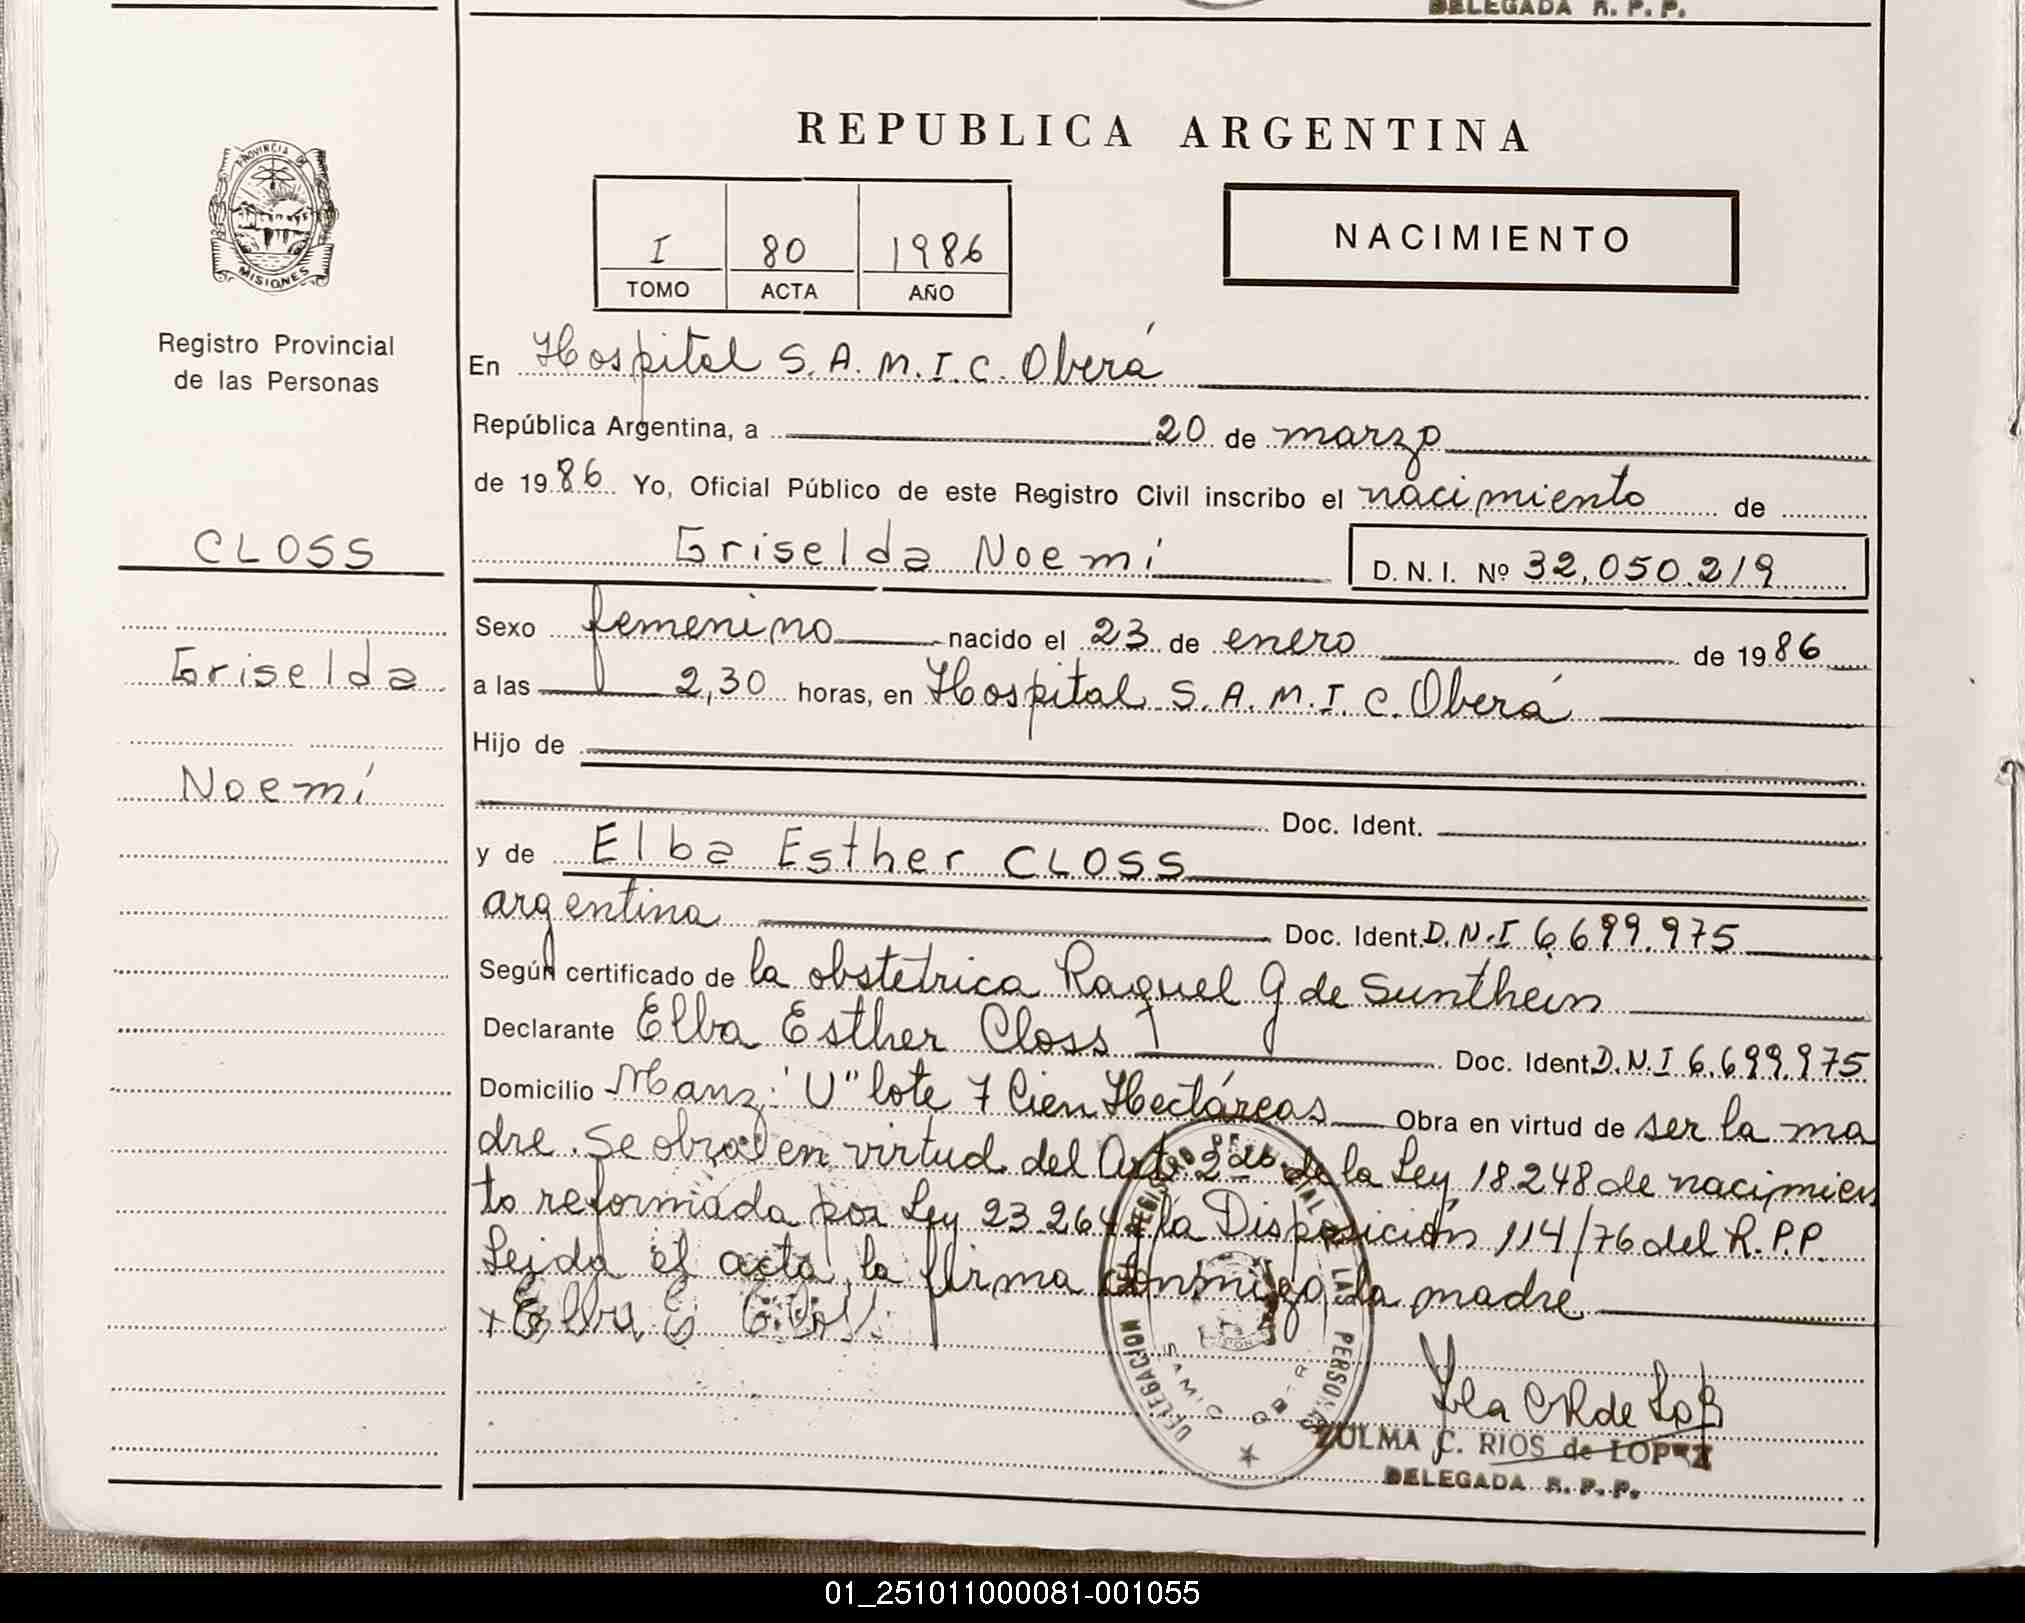 DELEGADA R. P. P.
REPUBLICA ARGENTINA
PROVINCIA DE
MISIONES
Registro Provincial
de las Personas
I 80 1986
TOMO ACTA AÑO
NACIMIENTO
CLOSS
Griselda
Noemí
En Hospital S. A. M. I. C. Oberá
República Argentina, a 20 de marzo
de 1986 Yo, Oficial Público de este Registro Civil inscribo el nacimiento de
Griselda Noemí D. N. I. Nº 32.050.219
Sexo femenino nacido el 23 de enero de 1986
a las 2,30 horas, en Hospital S. A. M. I. C. Oberá
Hijo de
Doc. Ident.
y de Elba Esther CLOSS
argentina Doc. Ident. D. N. I 6.699.975
Según certificado de la obstetrica Raquel G de Sunthein
Declarante Elba Esther Closs Doc. Ident. D. N. I 6.699.975
Domicilio Manz: "U" lote 7 Cien Hectáreas Obra en virtud de ser la ma
dre. Se obra en virtud del Art. 2do. de la Ley 18248 de nacimien
to reformada por Ley 23.264 y la Disposición 114/76 del R. P. P.
Leida el acta, la firma conmigo, la madre
x Elba E Clos
DELEGACION REGISTRO PROVINCIAL DE LAS PERSONAS
SAMIC
ZULMA C. RIOS de LOPEZ
DELEGADA R. P. P.
01_251011000081-001055